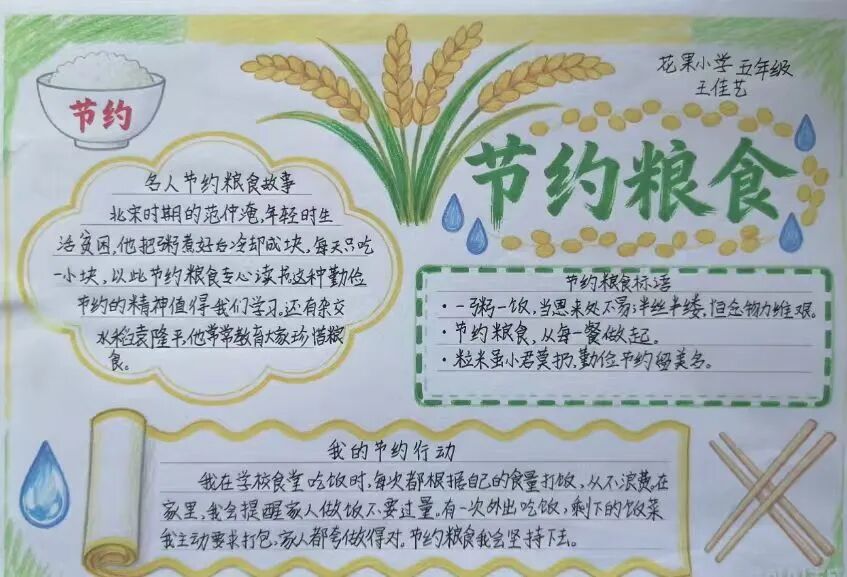 节约
花果小学 五年级
王佳艺
节约粮食
名人节约粮食故事
北宋时期的范仲淹,年轻时生
活贫困,他把粥煮好台冷却成块,每天只吃
一小块,以此节约粮食专心读书这种勤俭
节约的精神值得我们学习。还有杂交
水稻袁隆平,他常常教育大家珍惜粮
食。
节约粮食标语
·一粥一饭,当思来处不易半丝半缕,恒念物力维艰。
·节约粮食,从每一餐做起。
·粒米虽小君莫扔,勤俭节约留美名。
我的节约行动
我在学校食堂吃饭时,每次都根据自己的食量打饭,从不浪费。在
家里,我会提醒家人做饭不要过量。有一次外出吃饭,剩下的饭菜
我主动要求打包,家人都夸做得对。节约粮食我会坚持下去。